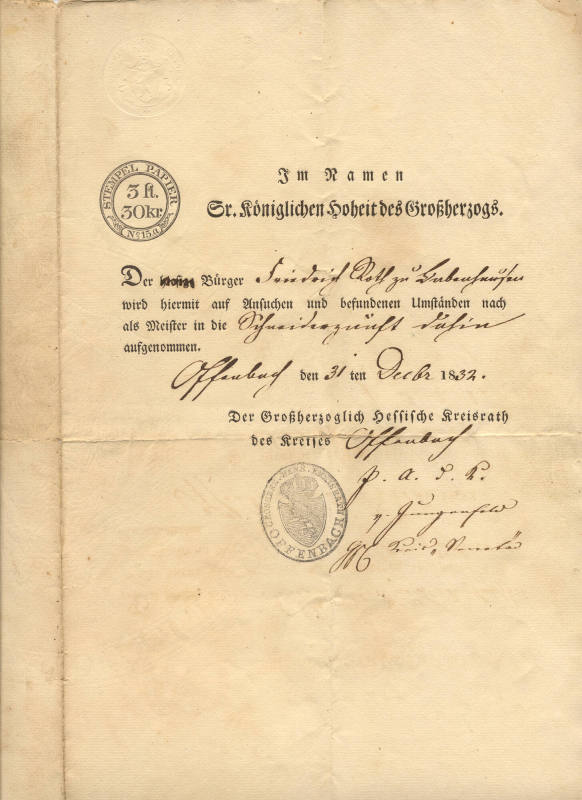 STEMPEL PAPIER
3 fl.
30 kr.
No 15.a
Im Namen
Sr. Königlichen Hoheit des Großherzogs.
Der Bürger Friedrich Roth zu Babenhausen
wird hiermit auf Ansuchen und befundenen Umständen nach
als Meister in die Schneiderzunft dahin
aufgenommen.
Offenbach den 31 ten Decbr 1832.
Der Großherzoglich Hessische Kreisrath
des Kreises Offenbach
p. a. d. K.
OFFENBACH